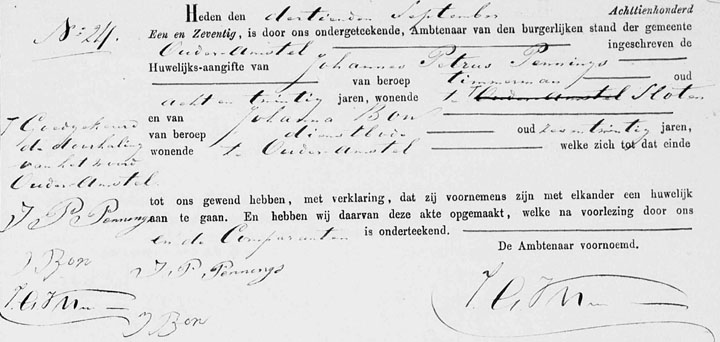 No: 24.
Heden den dertienden September Achttienhonderd
Een en Zeventig, is door ons ondergeteekende, Ambtenaar van den burgerlijken stand der gemeente
Ouder-Amstel ingeschreven de
Huwelijks-aangifte van Johannes Petrus Pennings
van beroep timmerman oud
acht en twintig jaren, wonende te Ouder-Amstel Sloten
en van Johanna Bon
van beroep dienstbode oud zeventwintig jaren,
wonende te Ouder-Amstel welke zich tot dat einde
tot ons gewend hebben, met verklaring, dat zij voornemens zijn met elkander een huwelijk
aan te gaan. En hebben wij daarvan deze akte opgemaakt, welke na voorlezing door ons
en de Comparanten is onderteekend.
De Ambtenaar voornoemd.
J. P. Pennings
J Bon
Goedgekeurd
de doorhaling
van het woord
Ouder-Amstel
J. P. Pennings
J Bon